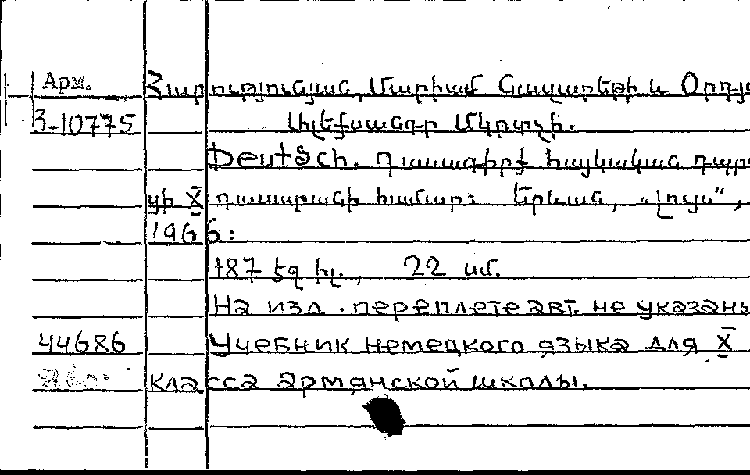 Арм. Հարությունյան, Մարիամ Գավարեթի և Օրդյ
3-10775 Ալեքսանդր Մկրտչի.
Deutsch. Դասագիրք հայկական դպրո
ցի X դասարանի համար: Երևան, „Լույս“,
1966:
187 էջ իլ., 22 սմ.
На изд. переплете авт. не указаны
44686 Учебник немецкого языка для X
класса армянской школы.